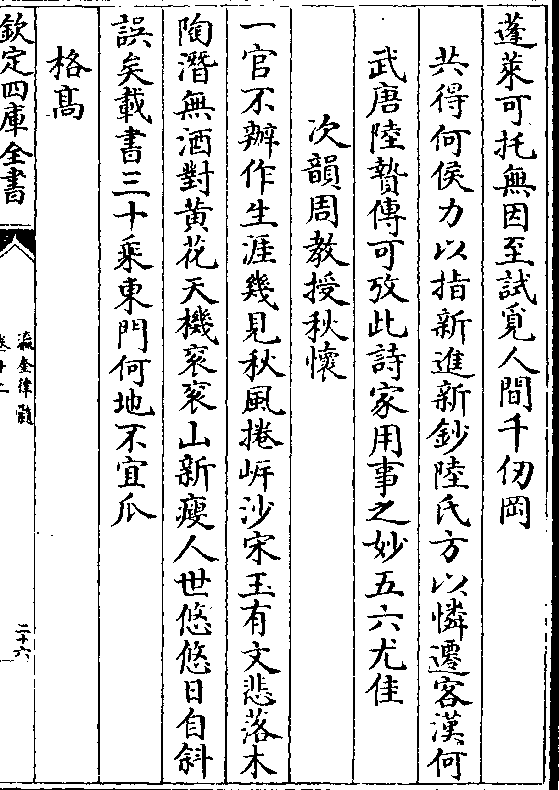 蓬萊可托無因至試覓人間千仞岡
共得何侯力以指新進新鈔陸氏方以憐遷客漢何
武唐陸贄傳可攷此詩家用事之妙五六尤佳
次韻周教授秋懷
一官不辦作生涯幾見秋風捲岍沙宋玉有文悲落木
陶潛無酒對黄花天機衮衮山新瘦人世悠悠日自斜
誤矣載書三十乘東門何地不宜瓜
格髙
欽定四庫全書
瀛奎律髓
卷十二
二十六